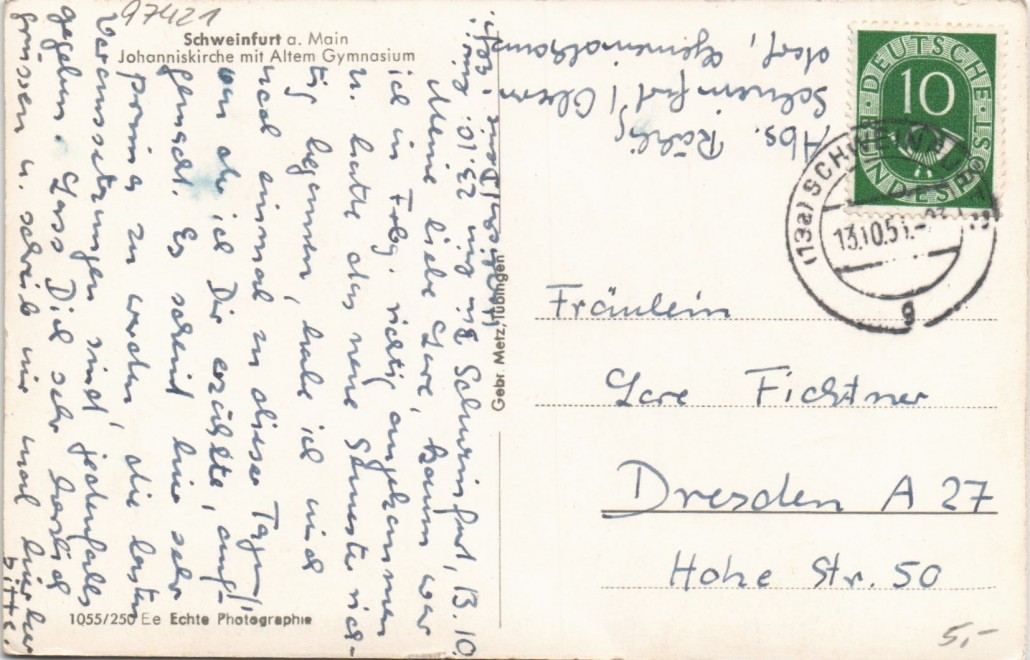 97421
Schweinfurt a. Main
Johanniskirche mit Altem Gymnasium
Schweinfurt, 13.10.
Meine liebe Lore, kaum war
ich in Fbg. richtig angekommen
u. hatte das neue Semester rich-
tig begonnen, habe ich mich
noch einmal zu dieser Tagung,
von der ich Dir erzählte, auf-
gemacht. Es scheint hier sehr
prima zu werden, die besten
Voraussetzungen sind jedenfalls
gegeben. Lass Dich sehr herzlich
grüssen u. schreib mir mal hierher
bitte.
Abs. Röhlig,
Schweinfurt / Obern-
dorf, Gemeinschafts
Gebr. Metz, Tübingen
1055/250 Ee Echte Photographie
DEUTSCHE BUNDESPOST
10
(13a) SCHWEINFURT
13.10.51.-23
g
Fräulein
Lore Fichtner
Dresden A 27
Hohe Str. 50
5,-